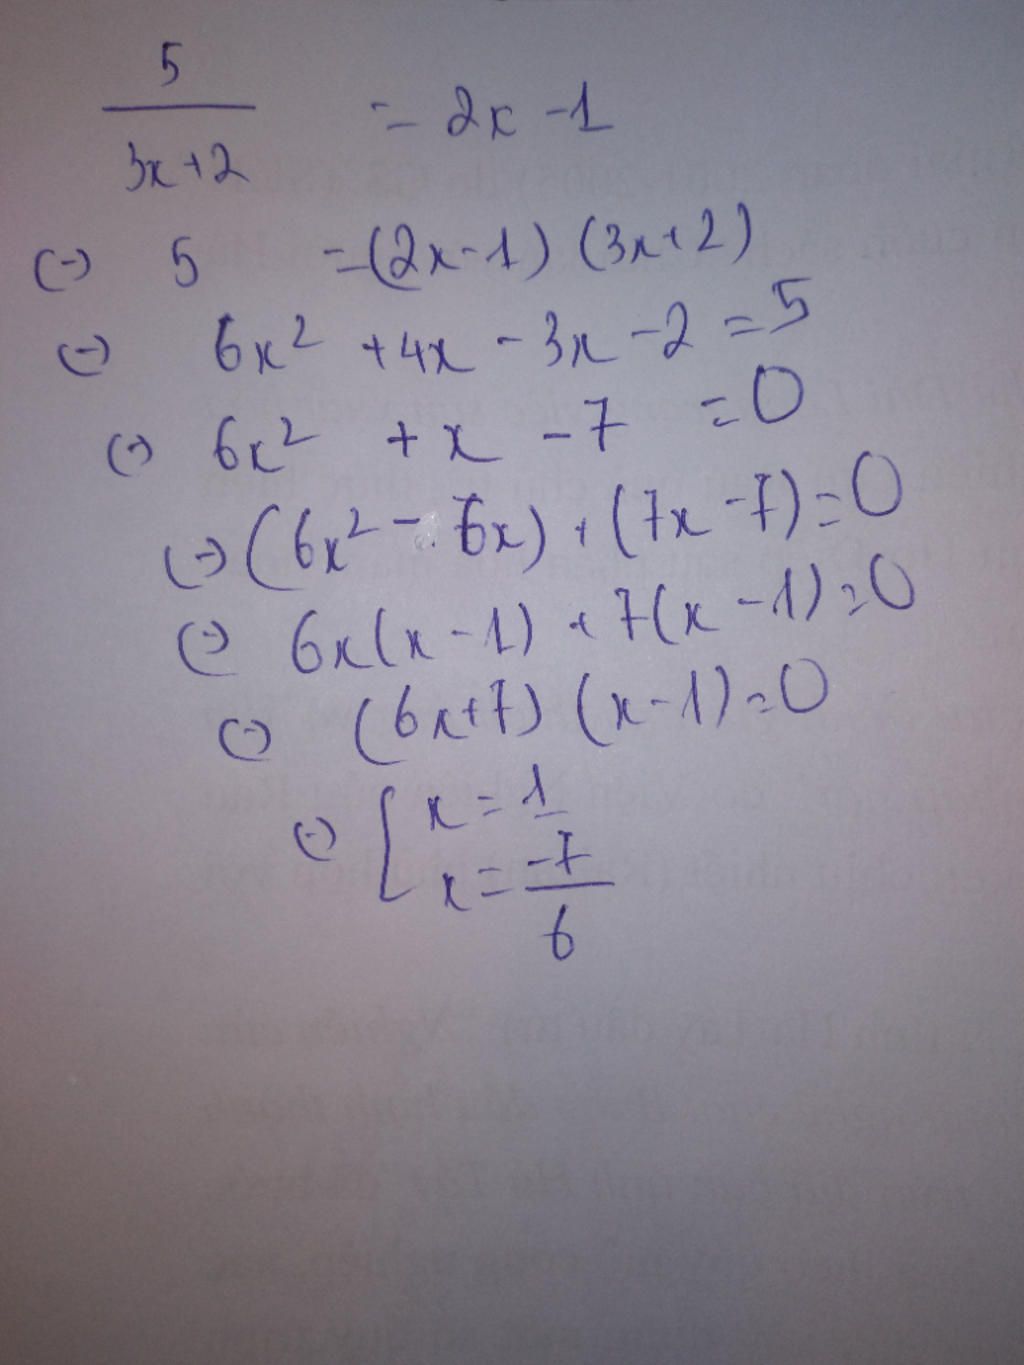 5/(3x+2) = 2x - 1
(-) 5 = (2x-1) (3x+2)
(-) 6x² + 4x - 3x - 2 = 5
(-) 6x² + x - 7 = 0
(-) (6x² - 6x) + (7x - 7) = 0
(-) 6x(x - 1) + 7(x - 1) = 0
(-) (6x+7) (x-1) = 0
(-) [ x = 1
x = -7/6